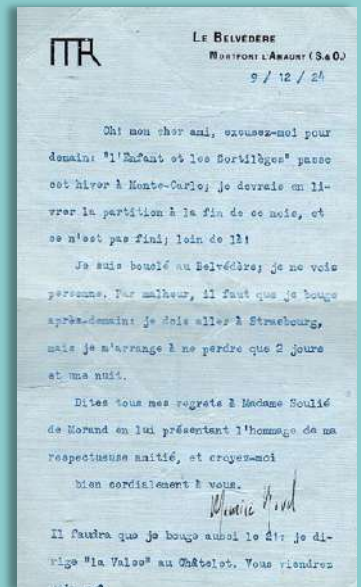 MR
LE BELVÉDÈRE
MONTFORT L'AMAURY (S.&O.)
9 / 12 / 24
Oh! mon cher ami, excusez-moi pour
demain: "l'Enfant et les Sortilèges" passe
cet hiver à Monte-Carlo; je devrais en li-
vrer la partition à la fin de ce mois, et
ce n'est pas fini; loin de là!
Je suis bouclé au Belvédère; je ne vois
personne. Par malheur, il faut que je bouge
après-demain: je dois aller à Strasbourg,
mais je m'arrange à ne perdre que 2 jours
et une nuit.
Dites tous mes regrets à Madame Soulié
de Morand en lui présentant l'hommage de ma
respectueuse amitié, et croyez-moi
bien cordialement à vous.
Maurice Ravel
Il faudra que je bouge aussi le 21: je di-
rige "la Valse" au Châtelet. Vous viendrez